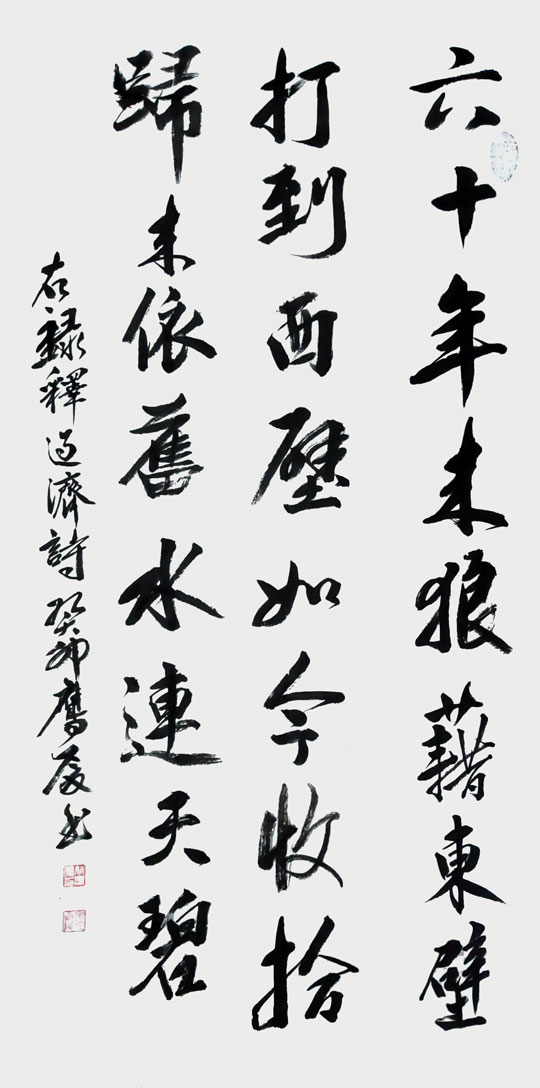 六十年来狼藉東壁
打到西壁如今收拾
歸来依舊水連天碧
右録釋道濟詩 癸卯鷹书